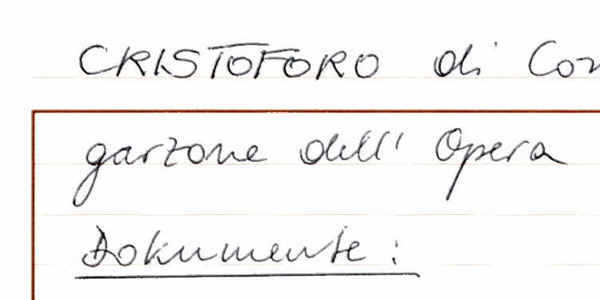 CRISTOFORO di
garzone dell' Opera
Dokumente: